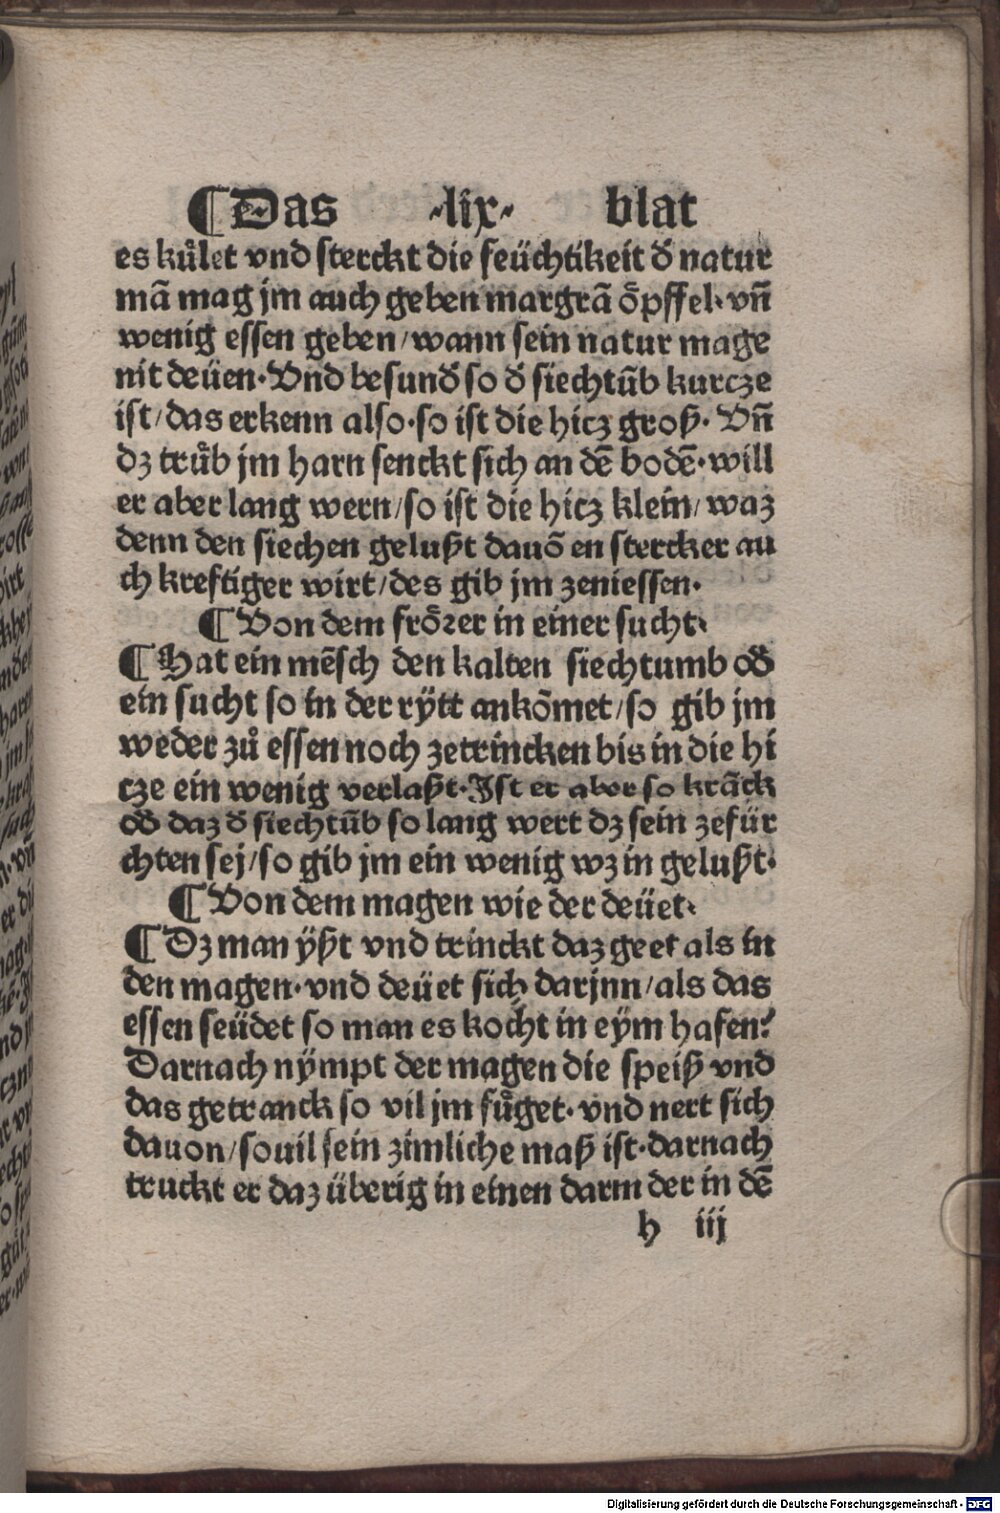 ¶ Das ·lix· blat
es kuͤlet vnd sterckt die feüchtikeit đ natur
mā mag jm auch geben margrā oͤpffel· vn̄
wenig essen geben/ wann sein natur mage
nit deüen· Vnd besunđ so đ siechtūb kurcze
ist/ das erkenn also· so ist die hicz groß· Vn̄
dz truͤb jm harn senckt sich an dē bodē· will
er aber lang wern/ so ist die hicz klein/ waz
denn den siechen gelußt dauō en stercker au
ch kreftiger wirt/ des gib jm zeniessen·
¶ Von dem froͤrer in einer sucht·
¶ Hat ein mēsch den kalten siechtumb ođ
ein sucht so in der rÿtt ankōmet/ so gib jm
weder zuͦ essen noch zetrincken bis in die hi
cze ein wenig verlaßt· Ist er aber so krāck
ođ daz đ siechtūb so lang wert dz sein zefür
chten sej/ so gib jm ein wenig wz in gelußt·
¶ Von dem magen wie der deüet·
¶ Dz man ÿßt vnd trinckt daz geet als in
den magen· vnd deüet sich darjnn/ als das
essen seüdet so man es kocht in eÿm hafen?
Darnach nÿmpt der magen die speiß vnd
das getranck so vil jm fuͤget· vnd nert sich
dauon/ souil sein zimliche maß ist· darnach
truckt er daz überig in einen darm der in dē
h iij
Digitalisierung gefördert durch die Deutsche Forschungsgemeinschaft - DFG